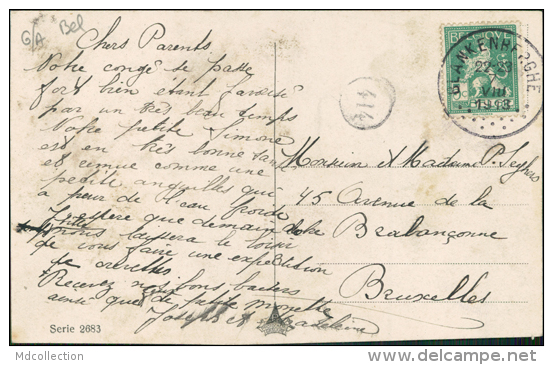 G/A Bel
Chers Parents
Votre congé se passe
fort bien étant favorisé
par un très beau temps
Votre petite Simone
est en très bonne santé
et remue comme une
petite anguilles qui
a peur de l'eau froide
J'espère que demain
nous laissera le loisir
de vous faire une expédition
de crevettes
Recevez nos bons baisers
ainsi que de petite
Joseph et Madeleine
Serie 2683
414
BELGIQUE
BLANKENBERGHE
VIII
1913
Monsieur et Madame P. Seghers
45 Avenue de la
Brabançonne
Bruxelles
Mdcollection
delcampe.net